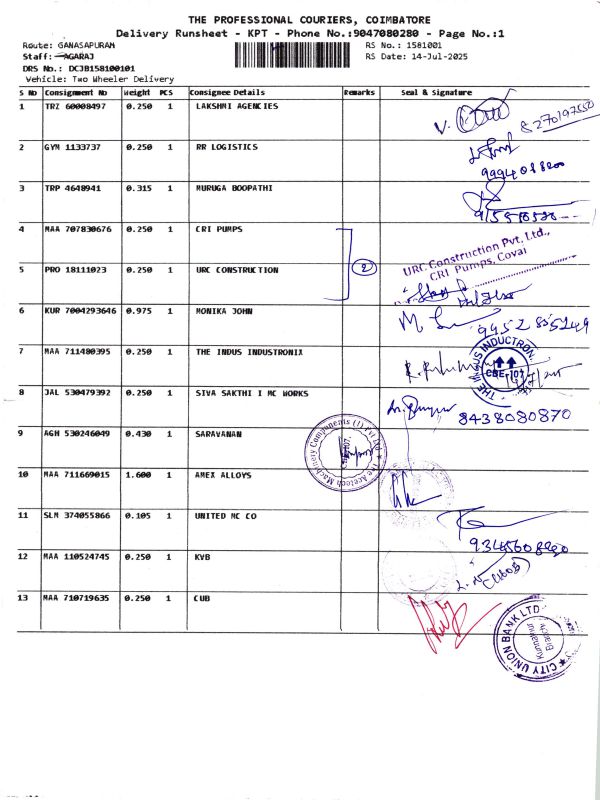 THE PROFESSIONAL COURIERS, COIMBATORE
Delivery Runsheet - KPT - Phone No.:9047080280 - Page No.:1
Route: GANASAPURAM
RS No.: 1581001
Staff: AGARAJ
RS Date: 14-Jul-2025
DRS No.: DCJB158100101
Vehicle: Two Wheeler Delivery
S No Consignment No Weight PCS Consignee Details Remarks Seal & Signature
1 TRZ 60008497 0.250 1 LAKSHMI AGENCIES
8270197550
2 GYM 1133737 0.250 1 RR LOGISTICS
3 TRP 4648941 0.315 1 MURUGA BOOPATHI
4 MAA 707830676 0.250 1 CRI PUMPS
2
URC Construction Pvt. Ltd.,
CRI Pumps, Covai
5 PRO 18111023 0.250 1 URC CONSTRUCTION
6 KUR 7004293646 0.975 1 MONIKA JOHN
7 MAA 711480395 0.250 1 THE INDUS INDUSTRONIX
THE INDUS INDUCTRON
CBE-107
8 JAL 530479392 0.250 1 SIVA SAKTHI I MC WORKS
8438080870
9 AGH 530246049 0.430 1 SARAVANAN
The Acetech Machinery Components (I) Pvt Ltd
10 MAA 711669015 1.600 1 AMEX ALLOYS
11 SLM 374055866 0.105 1 UNITED MC CO
12 MAA 110524745 0.250 1 KVB
13 MAA 710719635 0.250 1 CUB
CITY UNION BANK LTD
Branch